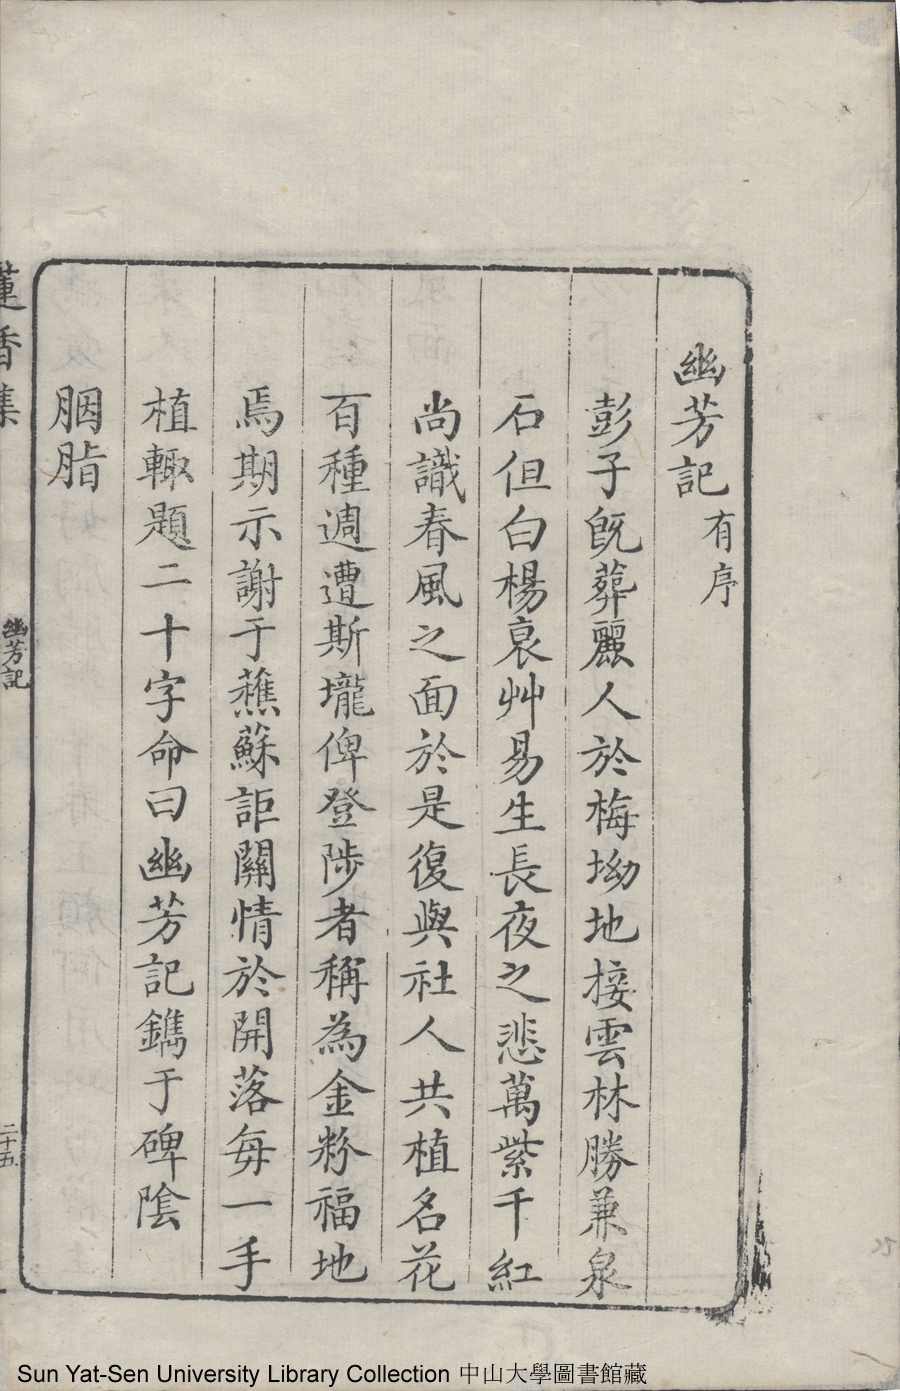 幽芳記有序
彭子旣葬麗人於梅坳地接雲林勝兼泉
石但白楊哀艸易生長夜之悲萬紫千紅
尚識春風之面於是復與社人共植名花
百種週遭斯壠俾登陟者稱為金粉福地
焉期示謝于蘓詎關情於開落每一手
植輙題二十字命曰幽芳記鐫于碑陰
胭脂
蓮香集
幽芳記
二十五
Sun Yat-Sen University Library Collection 中山大學圖書館藏